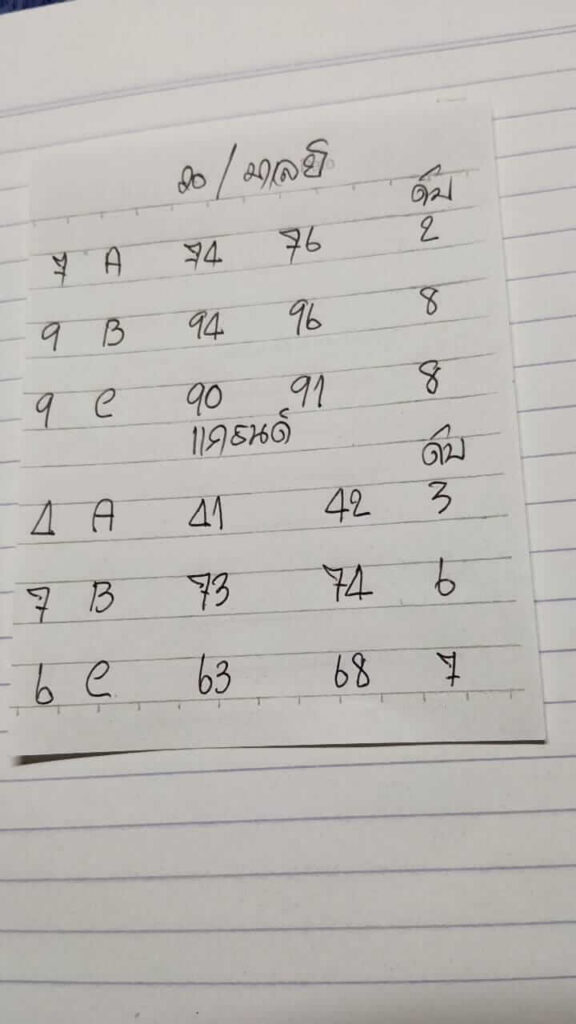 ฮอ / มาเลย์
ดับ
7 A 74 76 2
9 B 94 96 8
9 C 90 91 8
แคธนด์
ดับ
4 A 41 42 3
7 B 73 74 6
6 C 63 68 7